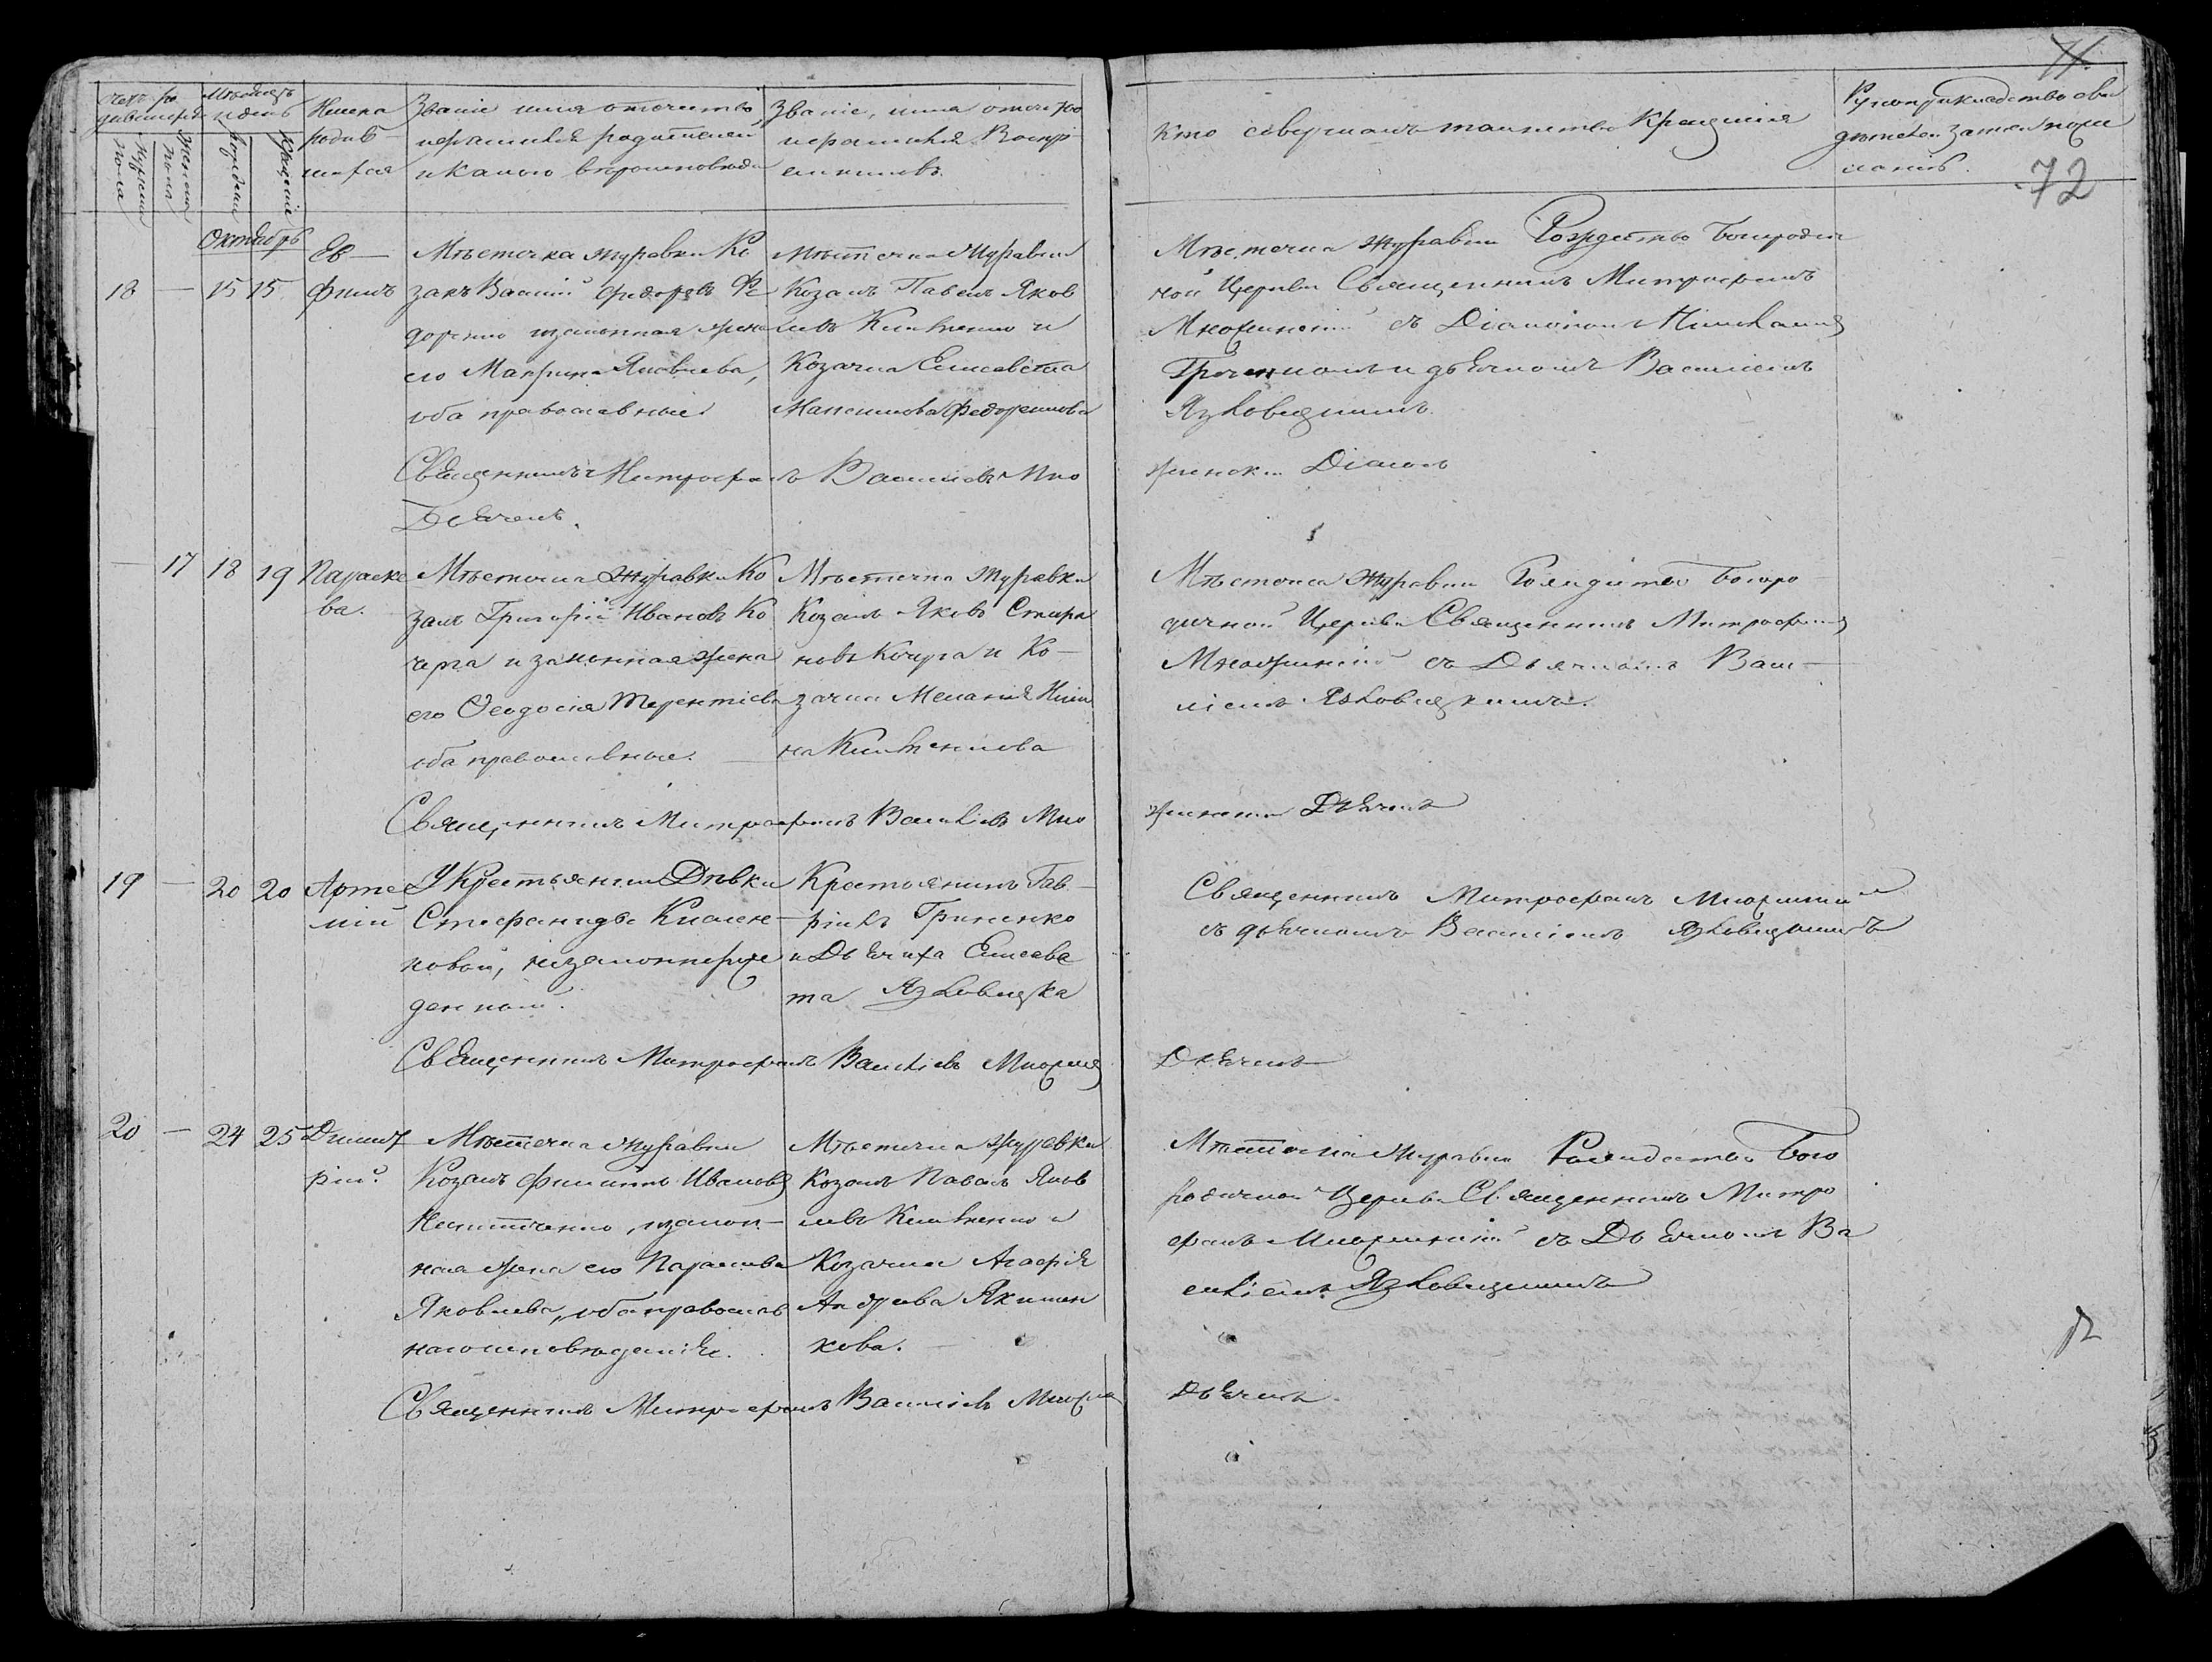 71.
72
Мѣсяцъ
и день
Имена
родив-
шихся
Званіе имя отчество
и фамилія родителей
и какого вѣроисповѣда
Званіе, имя отчество
и фамилія Воспрі-
емниковъ.
Кто совершалъ таинство Крещенія
Рукоприкладство сви
дѣтелей записи по же
ланію.
мужеска пола
женска пола
рожденія
Крещенія
Октябрь
18 — 15 15 Ев-
фимъ
Мѣстечка Журавки Ко
закъ Василій Федоровъ Фе
доренко и законная жена
его Макрина Яковлева,
оба православные
Мѣстечка Журавки
Козакъ Павелъ Яков
левъ и
Козачка Елисавета
Максимова Федоренкова
Мѣстечка Журавки Рождество Богородич
ной Церкви Священникъ Митрофанъ
съ Діакономъ
и дьячкомъ Василіемъ
Язловицкимъ.
Священникъ Митрофанъ Василіевъ Діаконъ
Дьячекъ.
— 17 18 19 Параске
ва.
Мѣстечка Журавки Ко
закъ Григорій Ивановъ Ко
черга и законная жена
его Ѳеодосія Терентіева
оба православные.
Мѣстечка Журавки
Козакъ Яковъ
новъ и Ко-
зачка Меланія
на
Мѣстечка Журавки Рождество Богоро
дичной Церкви Священникъ Митрофанъ
съ Дьячкомъ Васи-
ліемъ Язловицкимъ.
Священникъ Митрофанъ Василіевъ Дьячекъ
19 — 20 20 Арте
мій
У Крестьянки Дѣвки
Стефаниды
ковой, незаконнорож
денной.
Крестьянинъ Гав-
ріилъ Гриненко
и Дьячиха Елисаве
та Язловицка
Священникъ Митрофанъ
съ дьячкомъ Василіемъ Язловицкимъ
Священникъ Митрофанъ Василіевъ Дьячекъ
20 — 24 25 Димит
рій
Мѣстечка Журавки
Козакъ Филиппъ Ивановъ
, и закон-
ная жена его Параскева
Яковлева, оба православ
наго исповѣданія.
Мѣстечка Журавки
Козакъ Павелъ Яков
левъ и
Козачка Агафія
Андреева Якимен
кова.
Мѣстечка Журавки Рождество Бого
родичной Церкви Священникъ Митро
фанъ съ Дьячкомъ Ва
силіемъ Язловицкимъ
Священникъ Митрофанъ Василіевъ Дьячекъ